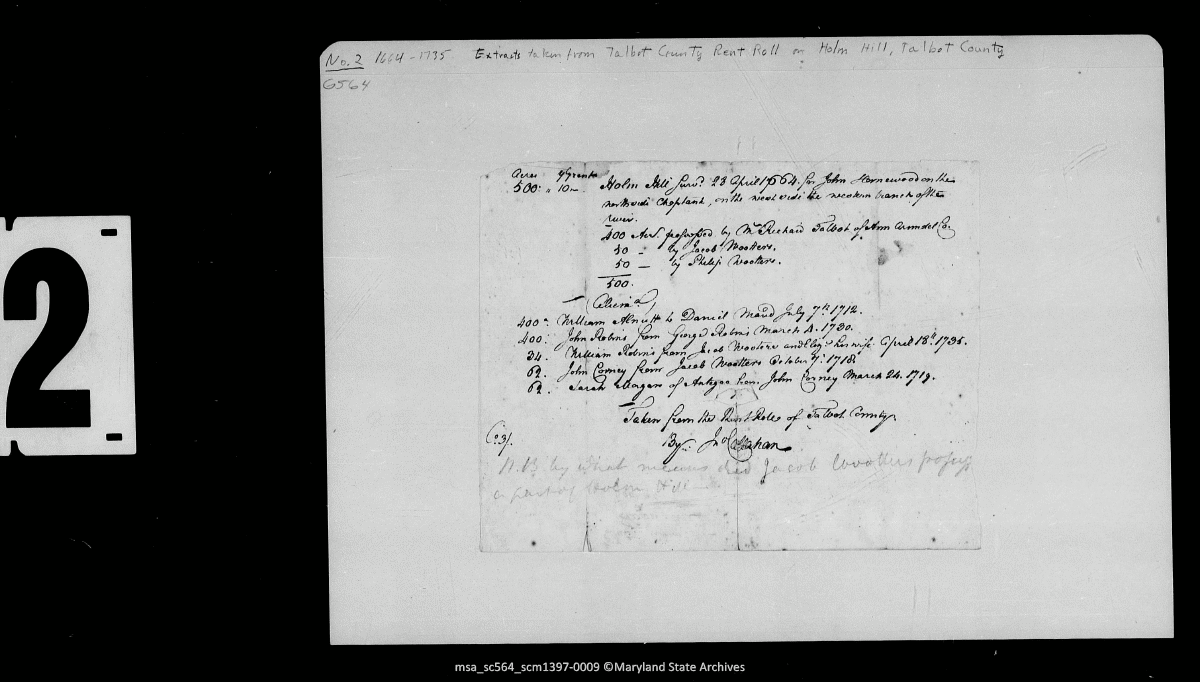 No. 2 1664-1735 Extracts taken from Talbot County Rent Roll on Holm Hill, Talbot County
G564
2
Acres
500: " 10 -- Holm Hill Survd. 23 April 1664. for John Hornewood on the
north side Choptank, on the west side the western branch of the
river.
400 Acrs. possessed by Mr. Richard Talbot of Ann Arundel Co.
50 - by Jacob Wootters.
50 - by Philip Wootters.
500.
400 William Alnutt to Daniel Maud July 7th 1712.
400: John Robins from George Robins March 4. 1730.
34. William Robins from Jacob Wooters and his wife April 18th 1735.
62. John Corney from Jacob Wootters October 7: 1718.
62. Sarah Morgan of Antigoa from John Corney March 24. 1719.
Taken from the Rent Rolls of Talbot County
By: Jno.
N.B. by what means did Jacob Wootters possess
a part of Holm Hill
msa_sc564_scm1397-0009 ©Maryland State Archives